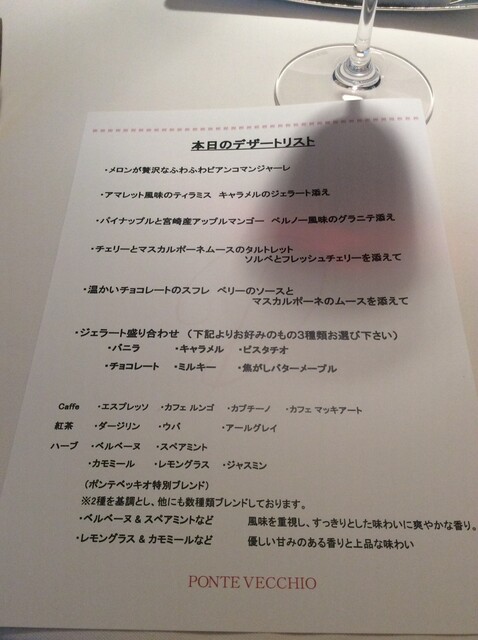 本日のデザートリスト
・メロンが贅沢なふわふわビアンコマンジャーレ
・アマレット風味のティラミス キャラメルのジェラート添え
・パイナップルと宮崎産アップルマンゴー ペルノー風味のグラニテ添え
・チェリーとマスカルポーネムースのタルトレット
ソルベとフレッシュチェリーを添えて
・温かいチョコレートのスフレ ベリーのソースと
マスカルポーネのムースを添えて
・ジェラート盛り合わせ (下記よりお好みのもの3種類お選び下さい)
・バニラ ・キャラメル ・ピスタチオ
・チョコレート ・ミルキー ・焦がしバターメープル
Caffe ・エスプレッソ ・カフェ ルンゴ ・カプチーノ ・カフェ マッキアート
紅茶 ・ダージリン ・ウバ ・アールグレイ
ハーブ ・ベルベーヌ ・スペアミント
・カモミール ・レモングラス ・ジャスミン
(ポンテベッキオ特別ブレンド)
※2種を基調とし、他にも数種類ブレンドしております。
・ベルベーヌ & スペアミントなど 風味を重視し、すっきりとした味わいに爽やかな香り。
・レモングラス & カモミールなど 優しい甘みのある香りと上品な味わい
PONTE VECCHIO